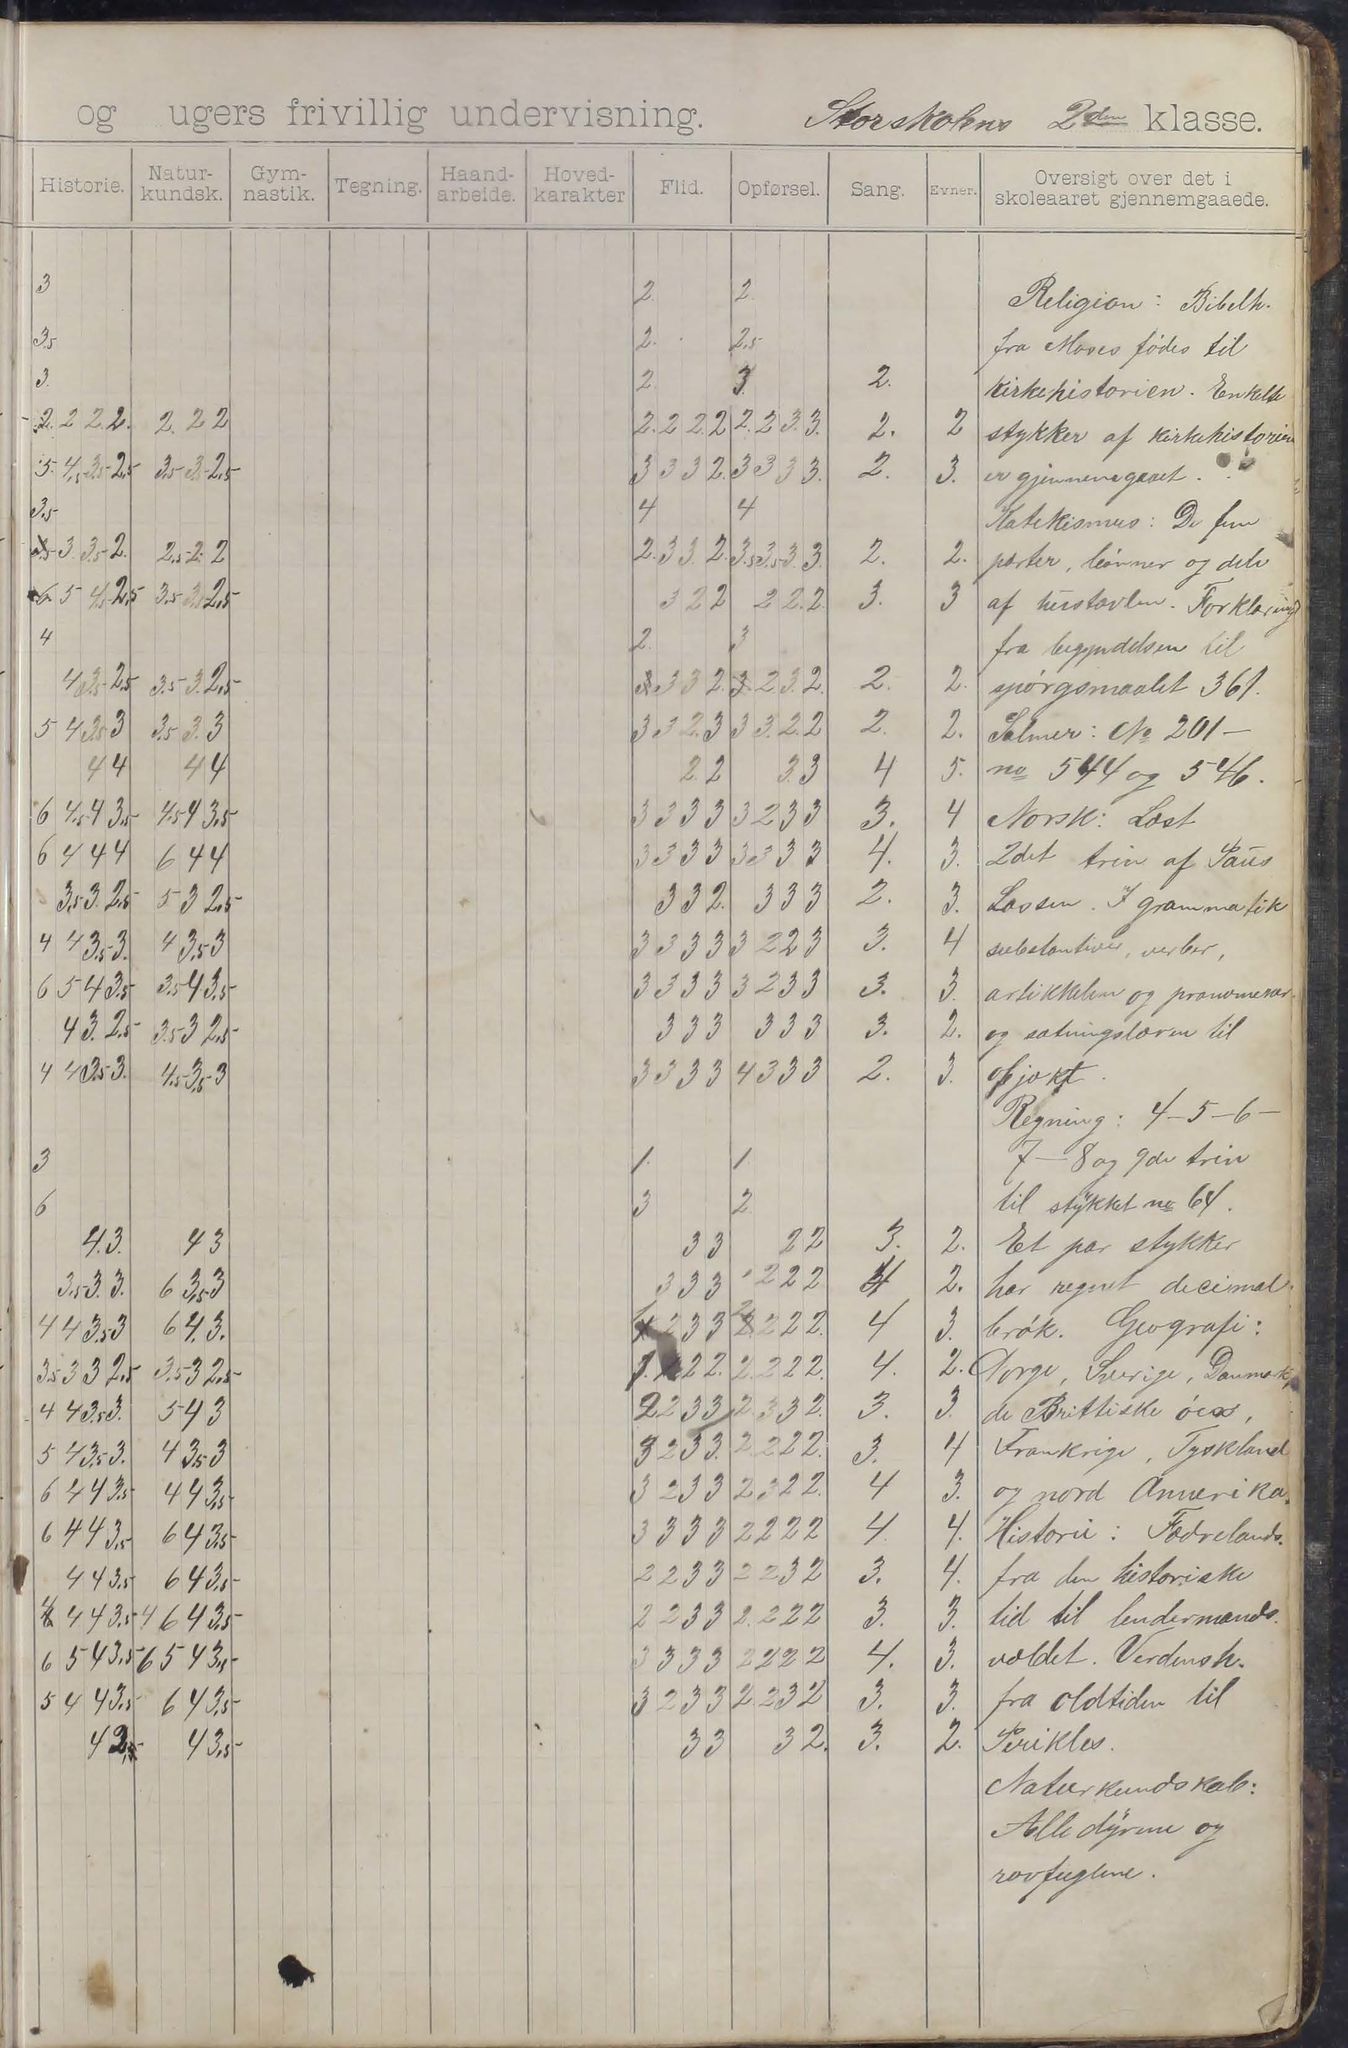 og ugers frivillig undervisning. Storskolens 2den klasse.
Historie. Natur-kundsk. Gym-nastik. Tegning. Haand-arbeide. Hoved-karakter Flid. Opførsel. Sang. Evner. Oversigt over det i skoleaaret gjennemgaaede.
3 2. 2. Religion: Bibelh.
3.5 2. 2.5 fra Moses fødes til
3. 2. 3. 2. kirkehistorien. Enkelte
2. 2 2 2. 2. 2 2 2. 2 2 2 2. 2 3. 3. 2. 2 stykker af kirkehistorien
5 4.5 3.5 2.5 3.5 3 2.5 3 3 3 2. 3 3 3 3. 2. 3. er gjennemgaaet.
3.5 4 4 Katekismus: De fem
3. 3.5 2. 2.5 2. 2 2. 3 3. 2. 3.5 3.5 3. 3. 2. 2. parter, bønner og dele
6 5 4.5 2.5 3.5 3. 2.5 3 2 2 2 2. 2 3. 3 af hustavlen. Forklaring
4 2. 3 fra begyndelsen til
4 3.5 2.5 3.5 3. 2.5 3 3 3 2. 3. 2 3. 2. 2. 2. spørgsmaalet 361.
5 4 3.5 3 3.5 3. 3 3 3 2. 3 3 3. 2. 2 2. 2. Salmer: No 201 –
4 4 4 4 2. 2 3. 3 4 5. no 544 og 546.
6 4.5 4 3.5 4.5 4 3.5 3 3 3 3 3 2 3 3 3. 4 Norsk: Læst
6 4 4 4 6 4 4 3 3 3 3 3 3 3 3 4. 3. 2det trin af Paus
3.5 3. 2.5 5 3 2.5 3 3 2. 3 3 3 2. 3. Lassen. I grammatik
4 4 3.5 3. 4 3.5 3 3 3 3 3 3 2 2 3 3. 4 substantiver, verber,
6 5 4 3.5 3.5 4 3.5 3 3 3 3 3 2 3 3 3. 3. artikkelen og pronomener
4 3. 2.5 3.5 3 2.5 3 3 3 3 3 3 3. 2. og sætningslæren til
4 4 3.5 3. 4.5 3.5 3 3 3 3 3 4 3 3 3 2. 3. objekt.
Regning: 4–5–6–
3 1. 1. 7–8 og 9de trin
6 3 2. til stykket no 64.
4. 3. 4 3 3 3 2 2 3. 2. Et par stykker
3.5 3 3. 6 3.5 3 3 3 3 2 2 2 4 2. har regnet decimal-
4 4 3.5 3 6 4. 3. 2 3 3 2 2 2. 4 3. brøk. Geografi:
3.5 3 3 2.5 3.5 3 2.5 1. 2 2. 2. 2 2 2. 4. 2. Norge, Sverige, Danmark,
4 4 3.5 3. 5 4 3 2 2 3 3 2. 3 3 2. 3. 3. de Brittiske øer,
5 4 3.5 3. 4 3.5 3 3 2 3 3. 2. 2 2 2. 3. 4 Frankrige, Tyskland
6 4 4 3.5 4 4 3.5 3 2 3 3 2 3 2 2. 4 3. og nord Amerika.
6 4 4 3.5 6 4 3.5 3 3 3 3 2 2 2 2 4. 4. Historie: Fædrelands.
4 4 3.5 6 4 3.5 2 2 3 3 2 2 3 2 3. 4. fra den historiske
4 4 4 3.5 4 6 4 3.5 2 2 3 3 2. 2 2 2 3. 3. tid til lendermands.
6 5 4 3.5 6 5 4 3.5 3 3 3 3 2 2 2 2 4. 3. vældet. Verdensh.
5 4 4 3.5 6 4 3.5 3 2 3 3 2. 2 3 2 3. 3. fra oldtiden til
4 2.5 4 3.5 3 3 3 2. 3. 2. Perikles.
Naturkundskab:
Alle dyrene og
rovfuglene.